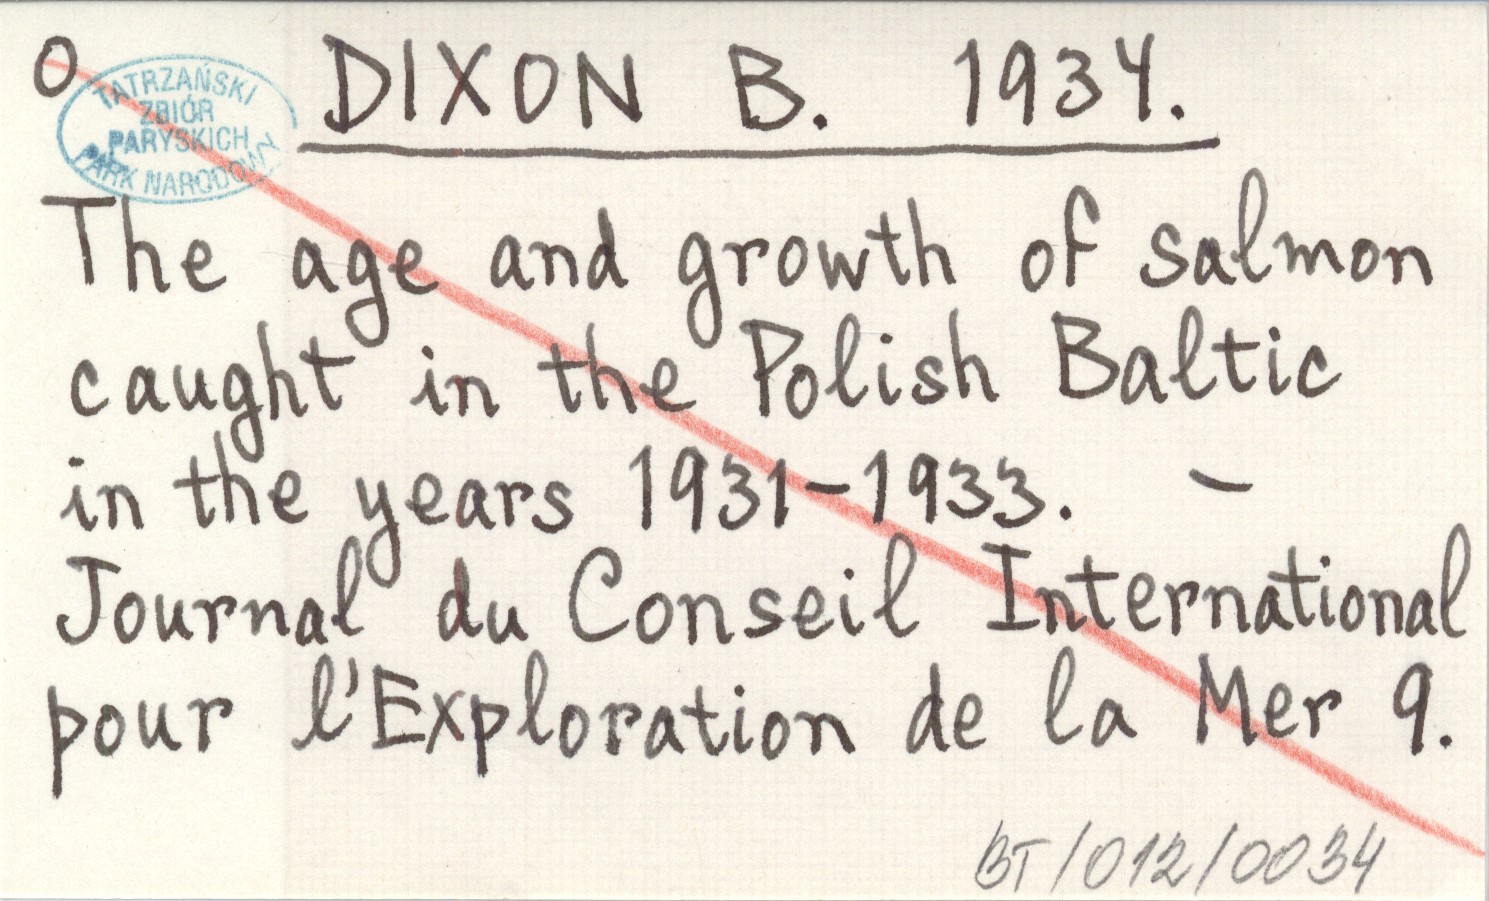 O DIXON B. 1934.
TATRZAŃSKI
ZBIÓR
PARYSKICH
PARK NARODOWY
The age and growth of salmon
caught in the Polish Baltic
in the years 1931-1933. -
Journal du Conseil International
pour l'Exploration de la Mer 9.
BT/012/0034